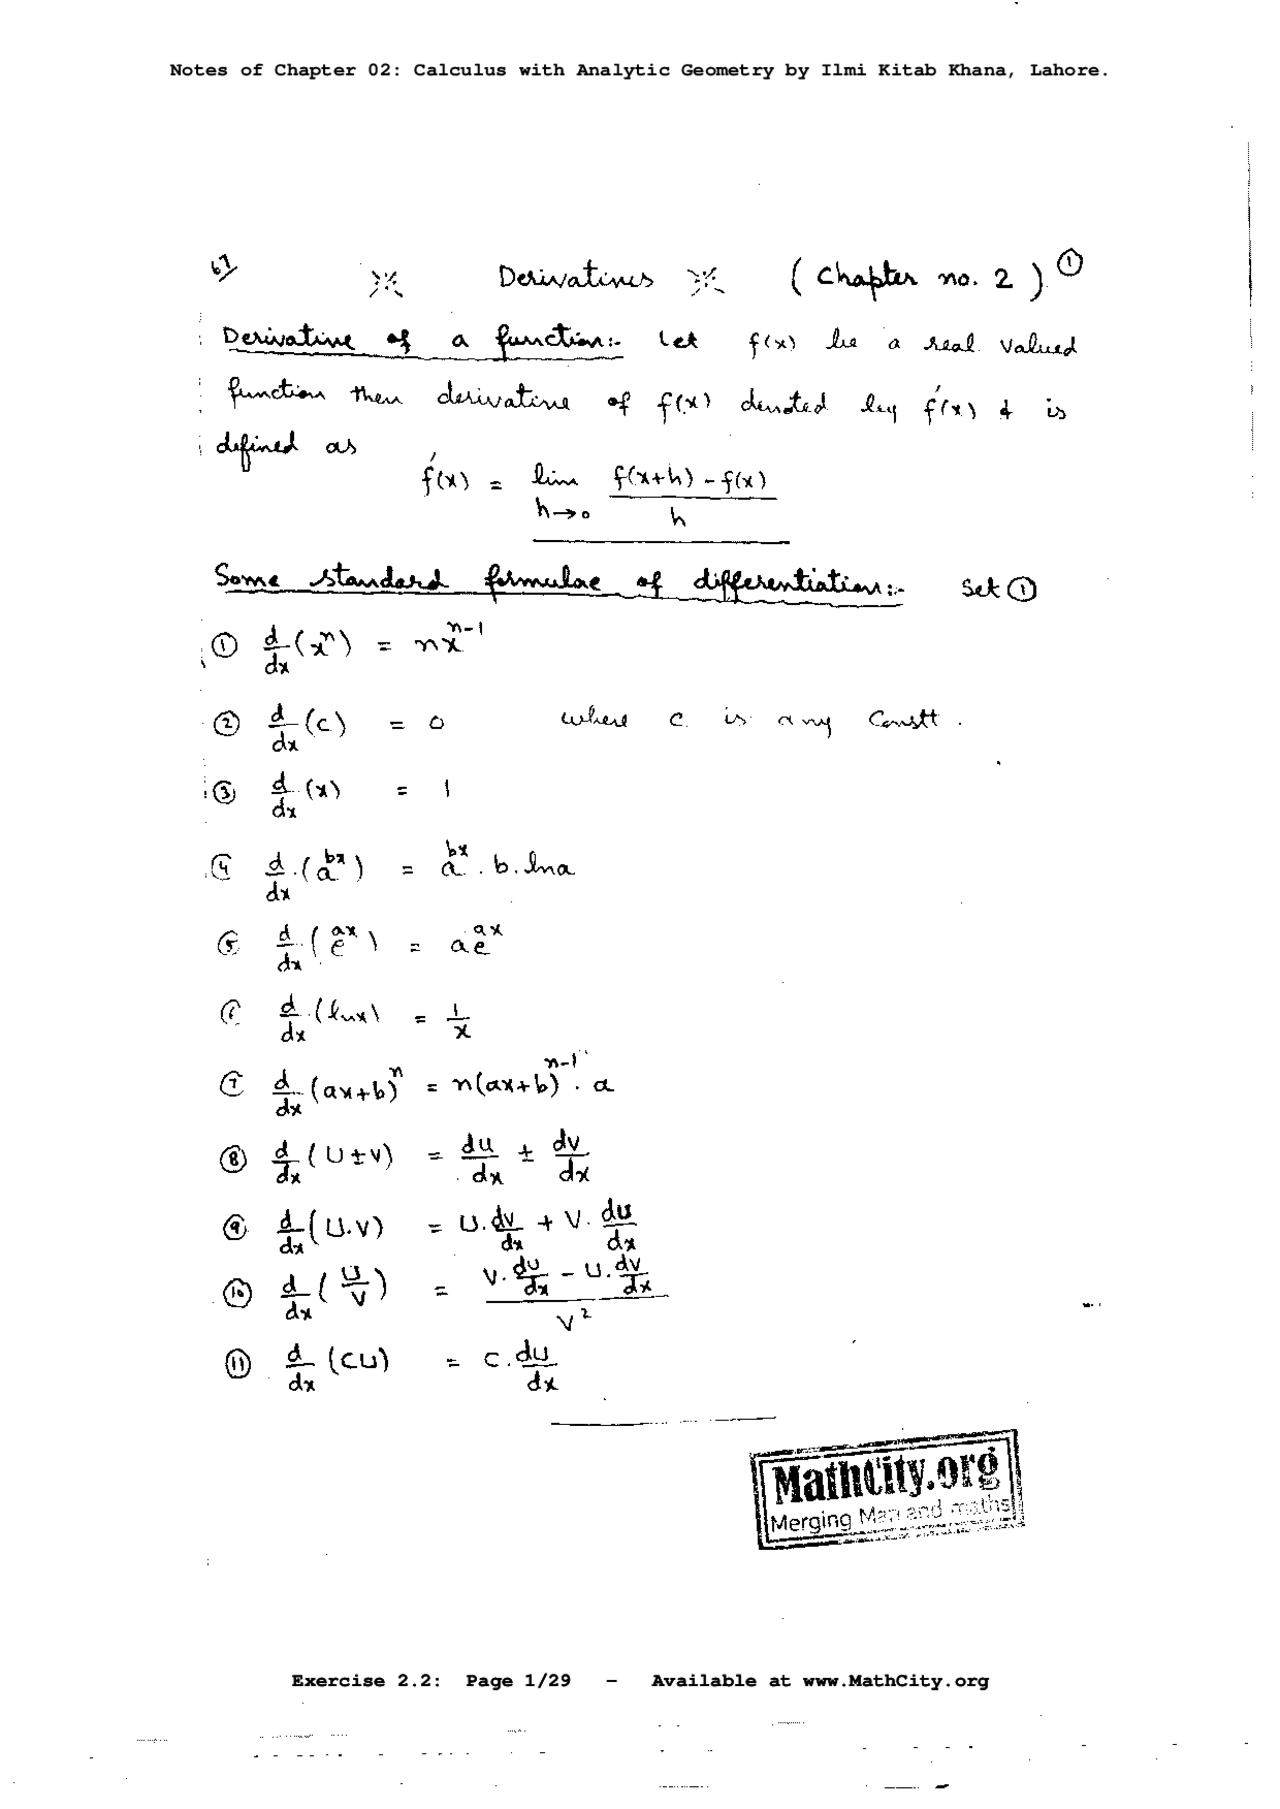 Notes of Chapter 02: Calculus with Analytic Geometry by Ilmi Kitab Khana, Lahore.
67 Derivatives (Chapter no. 2) ①
Derivative of a function:- Let f(x) be a real valued
function then derivative of f(x) denoted by f'(x) & is
defined as
f'(x) = lim h→0 (f(x+h) - f(x))/h
Some standard formulae of differentiation:- Set ①
① d/dx (x^n) = nx^(n-1)
② d/dx (c) = 0 where c is any Constt.
③ d/dx (x) = 1
④ d/dx (a^(bx)) = a^(bx) . b. lna
⑤ d/dx (e^(ax)) = ae^(ax)
⑥ d/dx (lnx) = 1/x
⑦ d/dx (ax+b)^n = n(ax+b)^(n-1) . a
⑧ d/dx (U±V) = du/dx ± dv/dx
⑨ d/dx (U.V) = U. dv/dx + V. du/dx
⑩ d/dx (U/V) = (V. du/dx - U. dv/dx)/V^2
⑪ d/dx (CU) = C. du/dx
MathCity.org
Merging Man and maths
Exercise 2.2: Page 1/29 - Available at www.MathCity.org